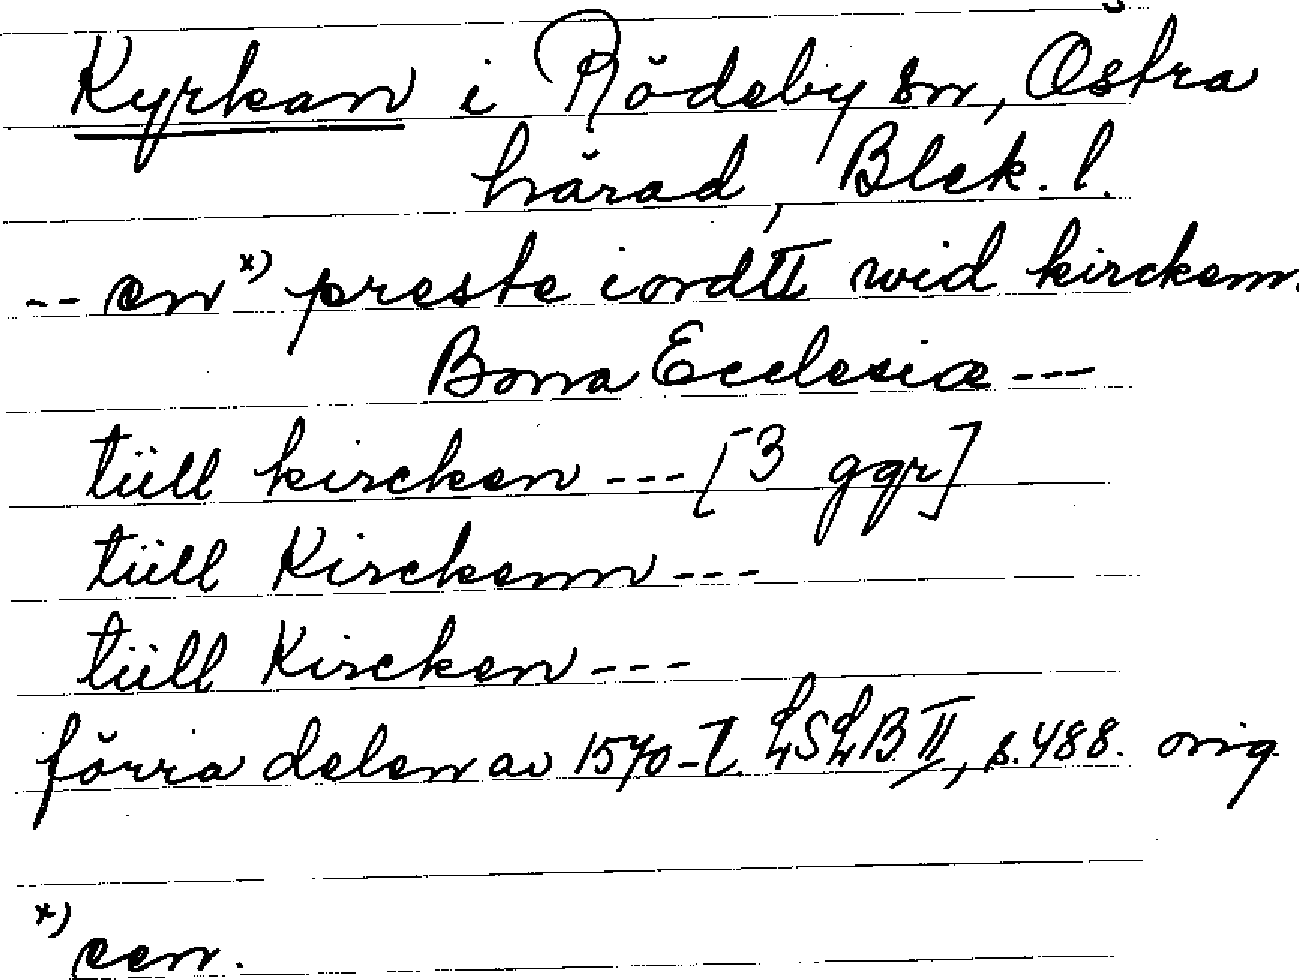 Kyrkan i Rödeby sn, Östra
härad, Blek. l.
-- en x) preste iordtt wid kircken.
Bona Ecclesiæ ---
tüll kircken --- [3 ggr]
tüll Kirckenn ---
tüll Kircken ---
förra delen av 1570-t. LSLB II, s. 488. orig
x) een.